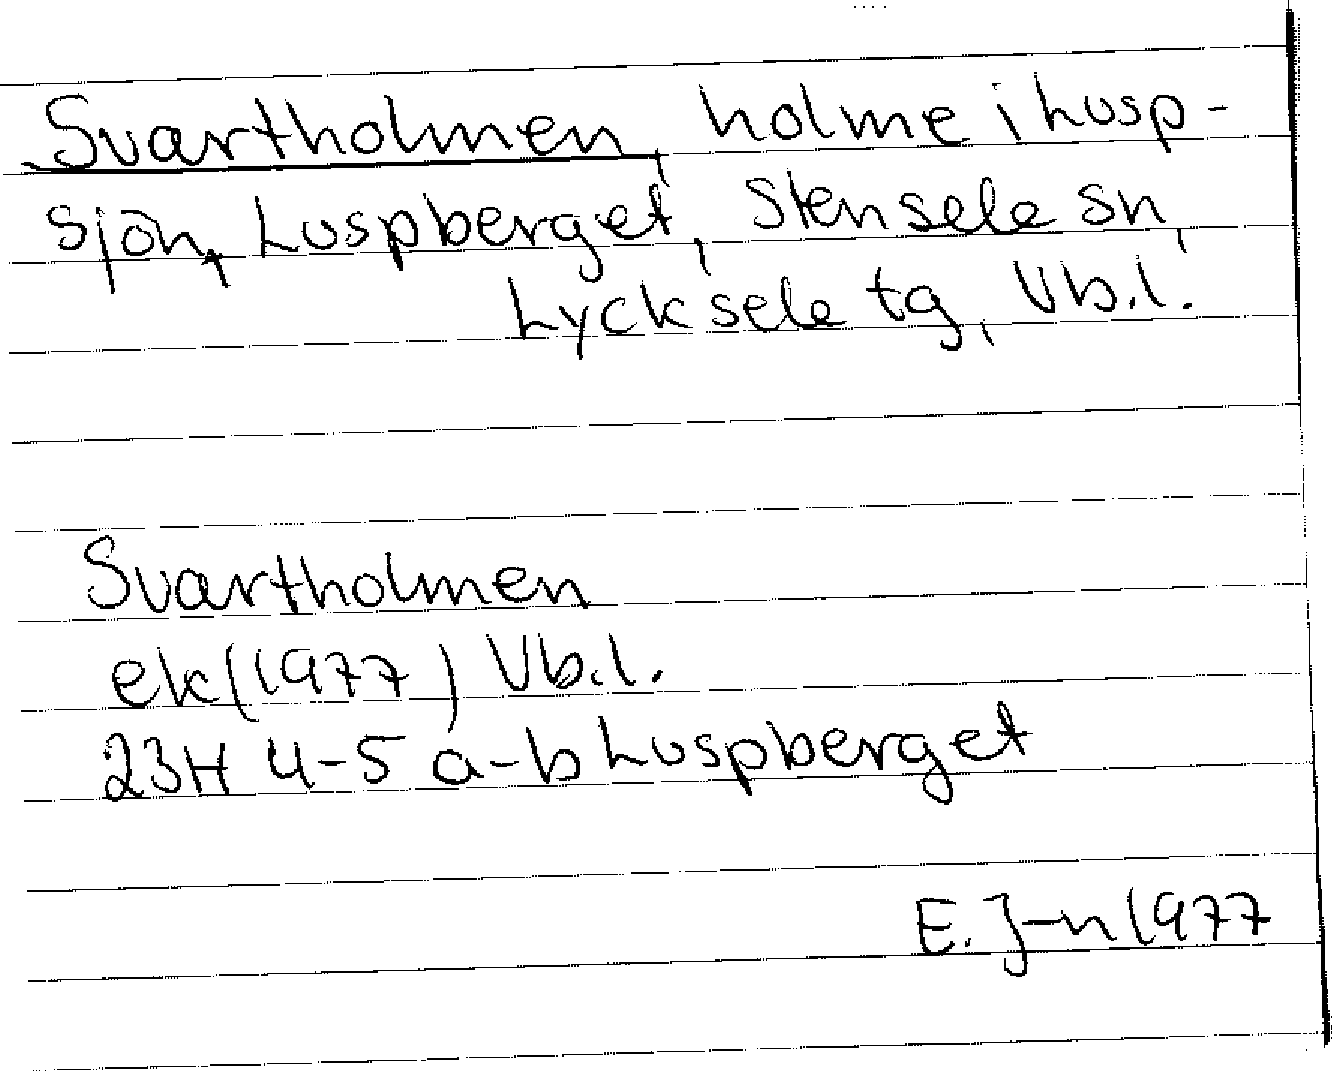 Svartholmen, holme i Lusp-
sjön, Luspberget, Stensele sn,
Lycksele tg, Vb.l.
Svartholmen
ek (1977) Vb.l.
23H 4-5 a-b Luspberget
E. J-n 1977